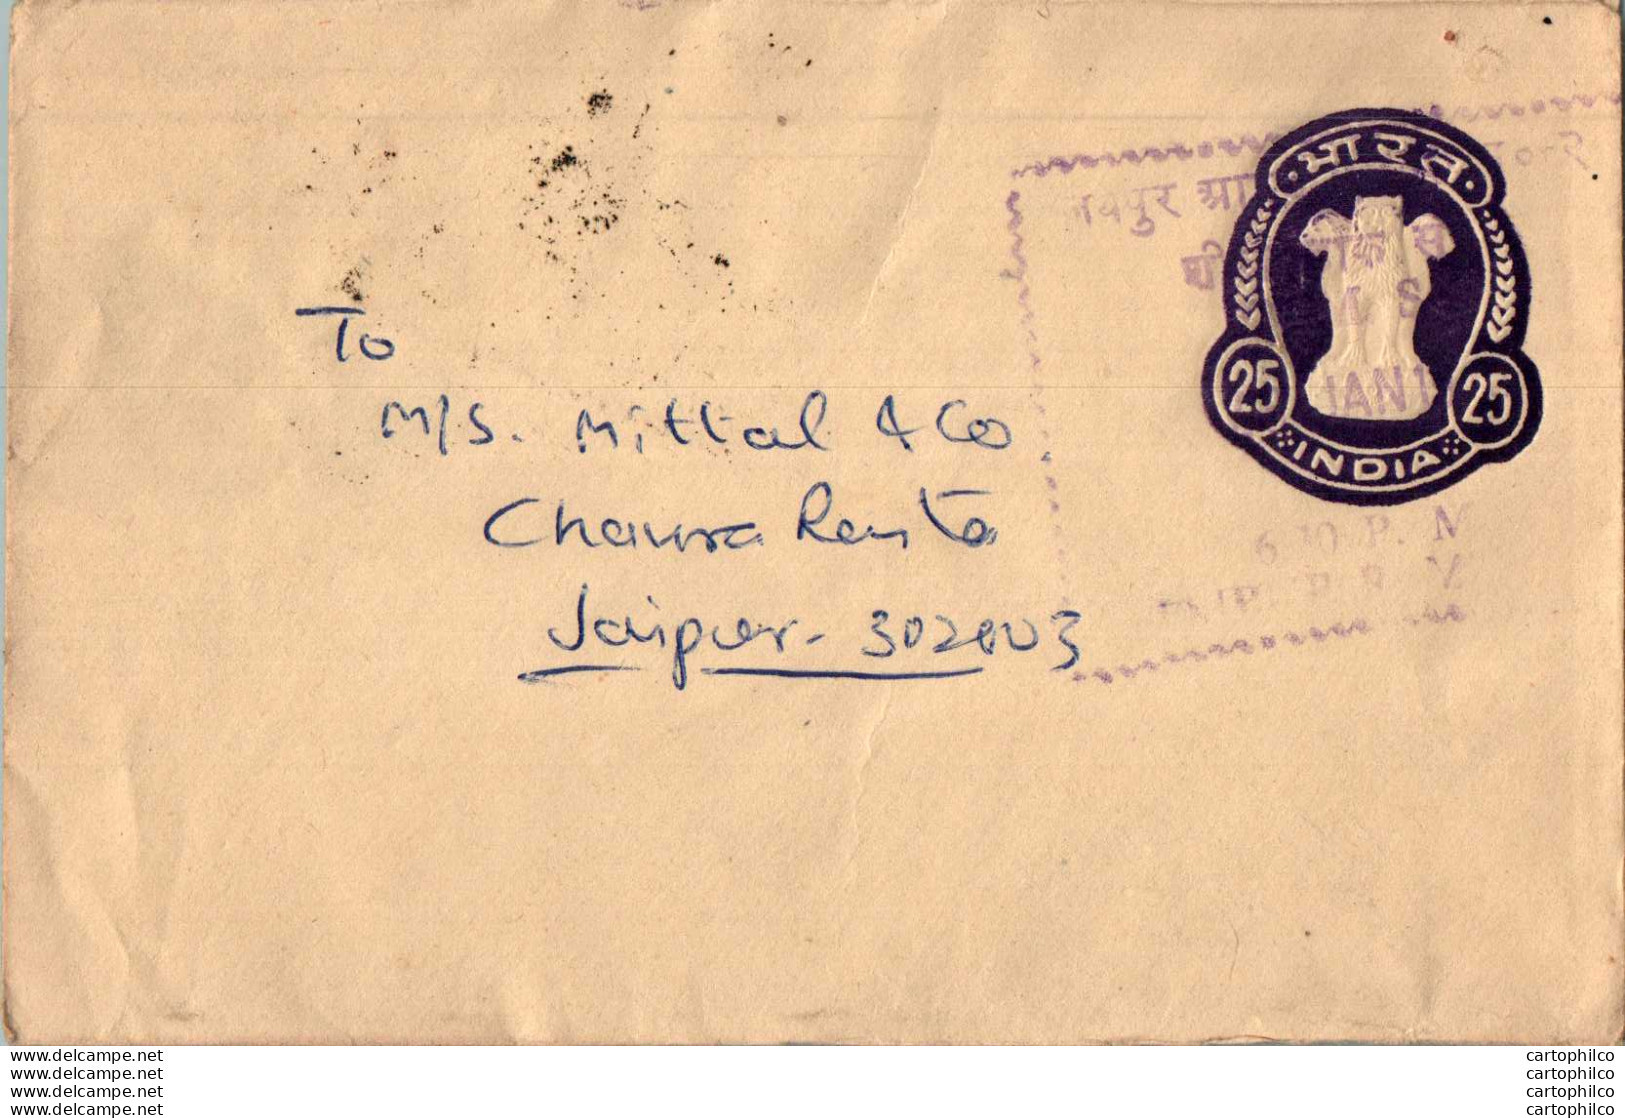 भारत
जयपुर
25 25
JAN 1
INDIA
6 30 P. M
To
M/S. Mittal & Co
Chaura Rasta
Jaipur - 302003
www.delcampe.net
www.delcampe.net
www.delcampe.net
www.delcampe.net
cartophilco
cartophilco
cartophilco
cartophilco